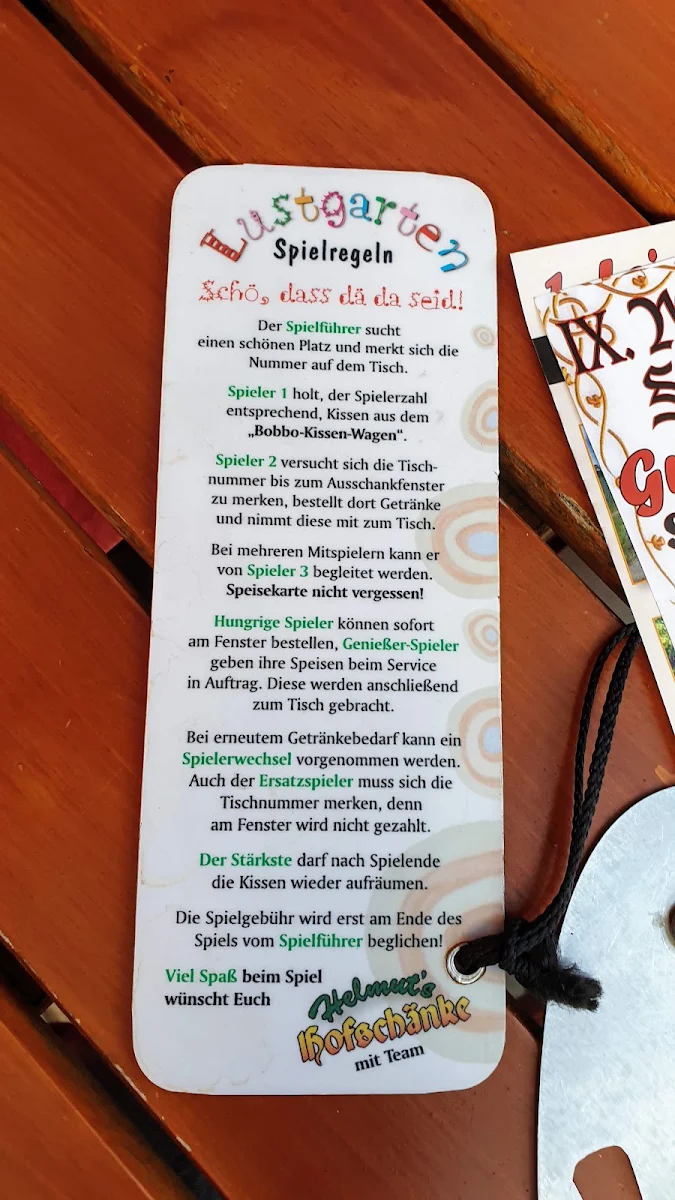 Lustgarten
Spielregeln
Schö, dass dä da seid!
Der Spielführer sucht
einen schönen Platz und merkt sich die
Nummer auf dem Tisch.
Spieler 1 holt, der Spielerzahl
entsprechend, Kissen aus dem
„Bobbo-Kissen-Wagen“.
Spieler 2 versucht sich die Tisch-
nummer bis zum Ausschankfenster
zu merken, bestellt dort Getränke
und nimmt diese mit zum Tisch.
Bei mehreren Mitspielern kann er
von Spieler 3 begleitet werden.
Speisekarte nicht vergessen!
Hungrige Spieler können sofort
am Fenster bestellen, Genießer-Spieler
geben ihre Speisen beim Service
in Auftrag. Diese werden anschließend
zum Tisch gebracht.
Bei erneutem Getränkebedarf kann ein
Spielerwechsel vorgenommen werden.
Auch der Ersatzspieler muss sich die
Tischnummer merken, denn
am Fenster wird nicht gezahlt.
Der Stärkste darf nach Spielende
die Kissen wieder aufräumen.
Die Spielgebühr wird erst am Ende des
Spiels vom Spielführer beglichen!
Viel Spaß beim Spiel
wünscht Euch
Helmut's
Hofschänke
mit Team
IX.